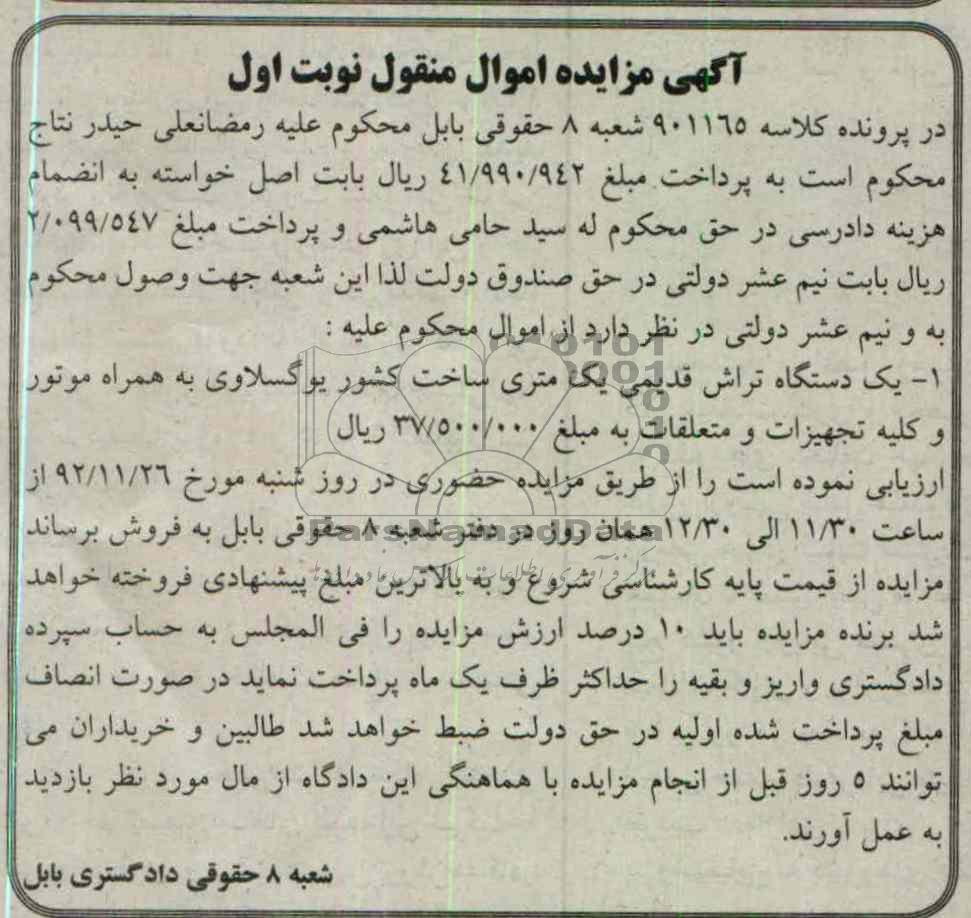 آگهی مزایده اموال منقول نوبت اول
در پرونده کلاسه ۹۰۱۱٦۵ شعبه ۸ حقوقی بابل محکوم علیه رمضانعلی حیدر نتاج
محکوم است به پرداخت مبلغ ٤۱/۹۹۰/۹٤۲ ریال بابت اصل خواسته به انضمام
هزینه دادرسی در حق محکوم له سید حامی هاشمی و پرداخت مبلغ ۲/۰۹۹/۵٤۷
ریال بابت نیم عشر دولتی در حق صندوق دولت لذا این شعبه جهت وصول محکوم
به و نیم عشر دولتی در نظر دارد از اموال محکوم علیه :
۱- یک دستگاه تراش قدیمی یک متری ساخت کشور یوگسلاوی به همراه موتور
و کلیه تجهیزات و متعلقات به مبلغ ۳۷/۵۰۰/۰۰۰ ریال
ارزیابی نموده است را از طریق مزایده حضوری در روز شنبه مورخ ۹۲/۱۱/۲٦ از
ساعت ۱۱/۳۰ الی ۱۲/۳۰ همان روز در دفتر شعبه ۸ حقوقی بابل به فروش برساند
ParsNamadData
مزایده از قیمت پایه کارشناسی شروع و به بالاترین مبلغ پیشنهادی فروخته خواهد
شد برنده مزایده باید ۱۰ درصد ارزش مزایده را فی المجلس به حساب سپرده
دادگستری واریز و بقیه را حداکثر ظرف یک ماه پرداخت نماید در صورت انصاف
مبلغ پرداخت شده اولیه در حق دولت ضبط خواهد شد طالبین و خریداران می
توانند ۵ روز قبل از انجام مزایده با هماهنگی این دادگاه از مال مورد نظر بازدید
به عمل آورند.
شعبه ۸ حقوقی دادگستری بابل